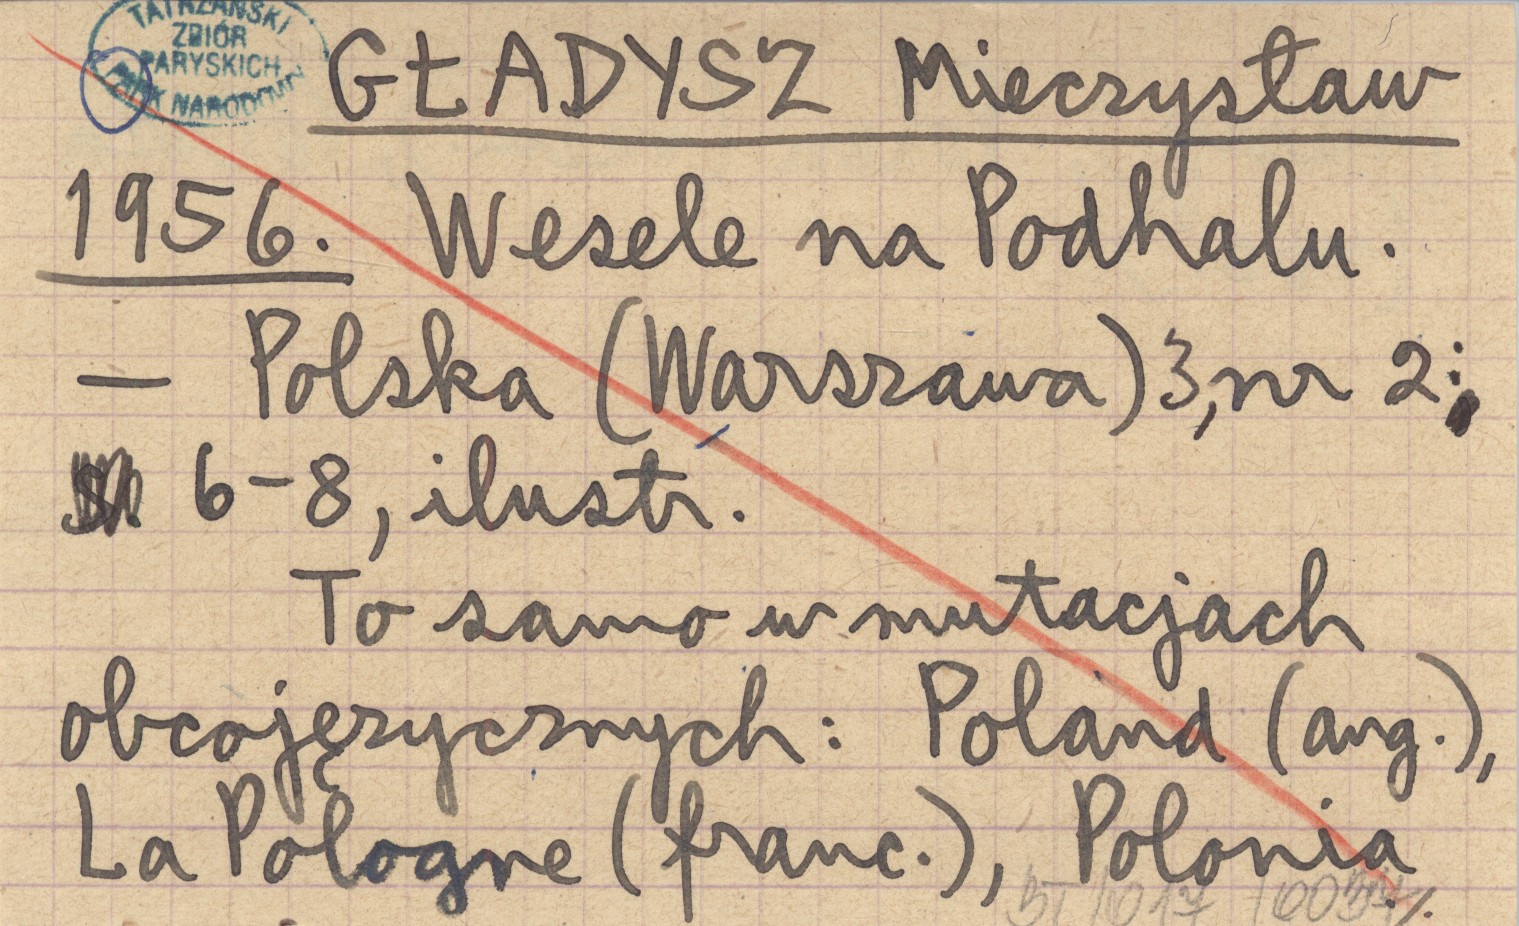 TATRZAŃSKI
ZBIÓR
PARYSKICH
PARK NARODOWY
GŁADYSZ Mieczysław
1956. Wesele na Podhalu.
— Polska (Warszawa) 3, nr 2;
6-8, ilustr.
To samo w mutacjach
obcojęzycznych: Poland (ang.),
La Pologne (franc.), Polonia